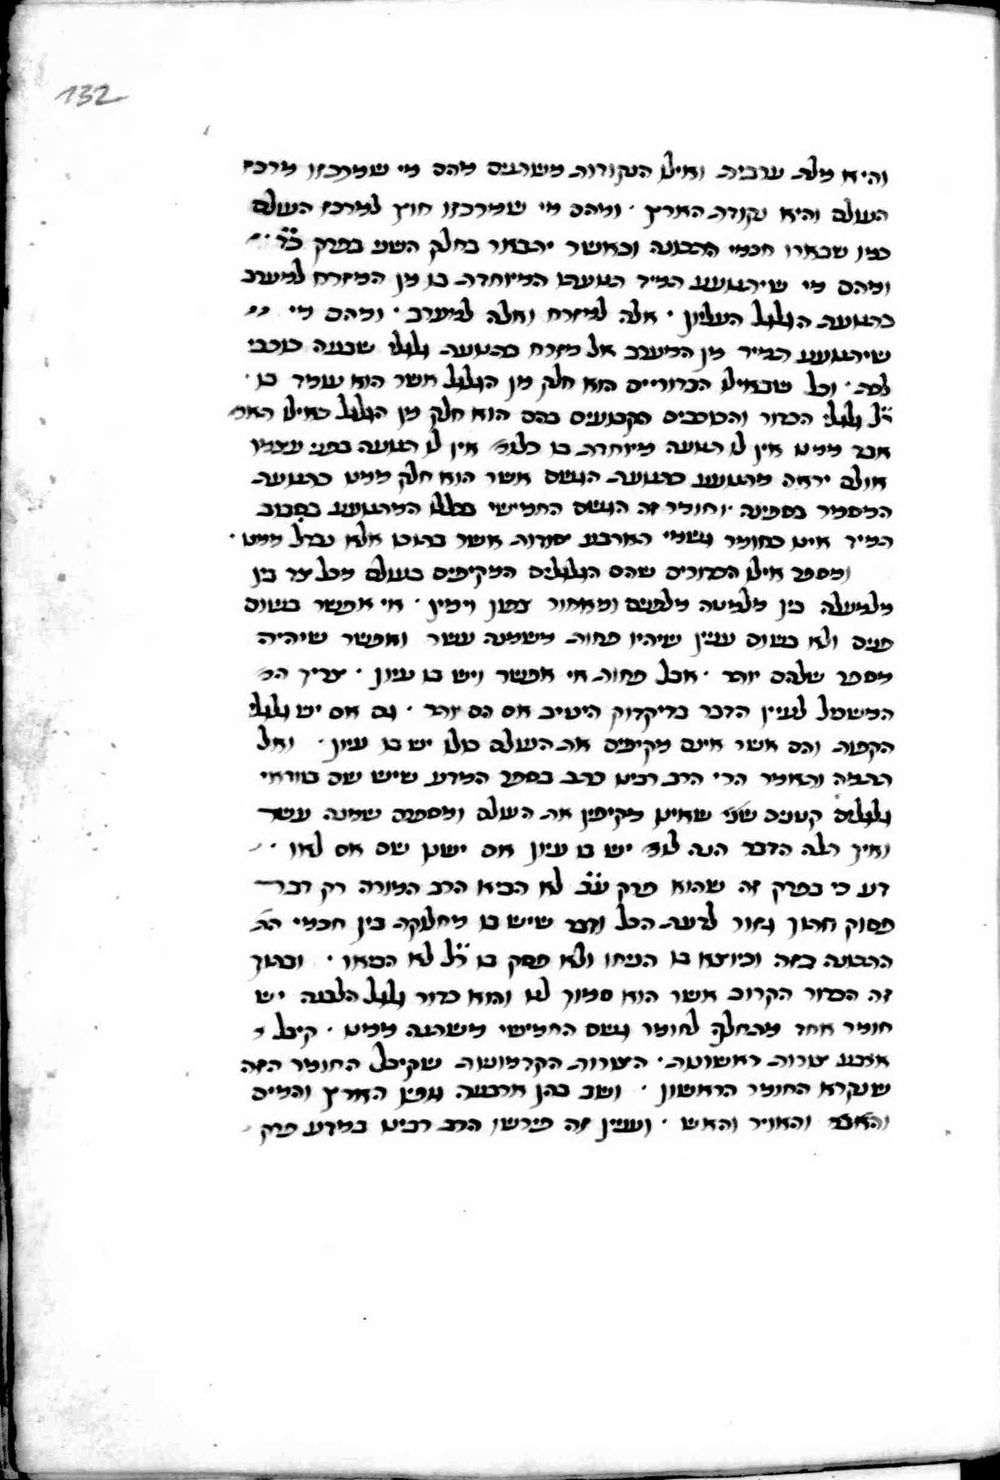 132
והיא מלה ערבית ואילו הנקודות משתנים מהם מי שמרכזו מרכז
העולם והיא נקודת הארץ · ומהם מי שמרכזו חוץ למרכז העולם
כמו שבארו חכמי התכונה וכאשר יתבאר בחלק השני בפרק כ"ד
ומהם מי שיתנועע תמיד תנועתו המיוחדת בו מן המזרח למערב
כתנועת הגלגל העליון · אלה למזרח ואלה למערב · ומהם מי
שיתנועע תמיד מן המערב אל מזרח כתנועת גלגלי שבעה כוכבי
לכת · וכל שבאילו הכדוריים הוא חלק מן הגלגל אשר הוא עומד בו ·
ר"ל גלגלי הכדור והכוכבים הקבועים בהם הוא חלק מן הגלגל כאילו האמ'
אבר ממנו אין לו תנועה מיוחדת בו כלומ' אין לו תנועה בפני עצמו
אולם יראה מתנועע כתנועת הגשם אשר הוא חלק ממנו כתנועת
המסמר בספינה · וחומר זה הגשם החמישי בכללו המתנועע בסבוב
תמיד אינו כחומר גשמי הארבע יסודות אשר בתוכו אלא נבדל ממנו ·
ומספר אילו הכדורים שהם הגלגלים המקיפים בעולם מכל צד בין
מלמעלה בין מלמטה מלפנים ומאחור צפון וימין · אי אפשר בשום
פנים ולא בשום ענין שיהיו פחות משמנה עשר ואפשר שיהיה
מספר שלהם יותר · אבל פחות אי אפשר ויש בו עיון · צריך המ'
המשכיל לעיין הדבר בדיקדוק היטיב אם הם יותר · גם אם יש גלגלי
הקפות והם אשר אינם מקיפים את העולם כולו יש בו עיון · ואל
תתמה ותאמר הרי הרב רבינו כתב בספר המדע שיש שם בוודאי
גלגלים קטנים שני שאינן מקיפין את העולם ומספרם שמנה עשר
ואיך תלה הדבר הנה לומ' יש בו עיון אם ישנן שם אם לאו ·
דע כי בפרק זה שהוא פרק ע"ב לא הביא הרב המורה רק דבר
פסוק חתוך גזור לדעת הכל ודבר שיש בו מחלוקת בין חכמי הת'
התכונה כזה וכיוצא בו הניחו ולא פסק בו ר"ל לא הביאו · ובתוך
זה הכדור הקרוב אשר הוא סמוך לנו והוא כדור גלגל הלבנה יש
חומר אחד מתחלף לחומר גשם החמישי משתנה ממנו · קיבל
ארבע צורות ראשונות · הצורות הקדמונות שקיבל החומר הזה
שנקרא החומר הראשון · ושב בהן ארבעה גופין הארץ והמים
והאויר והאש · וענין זה פירשו הרב רבינו במדע פרק